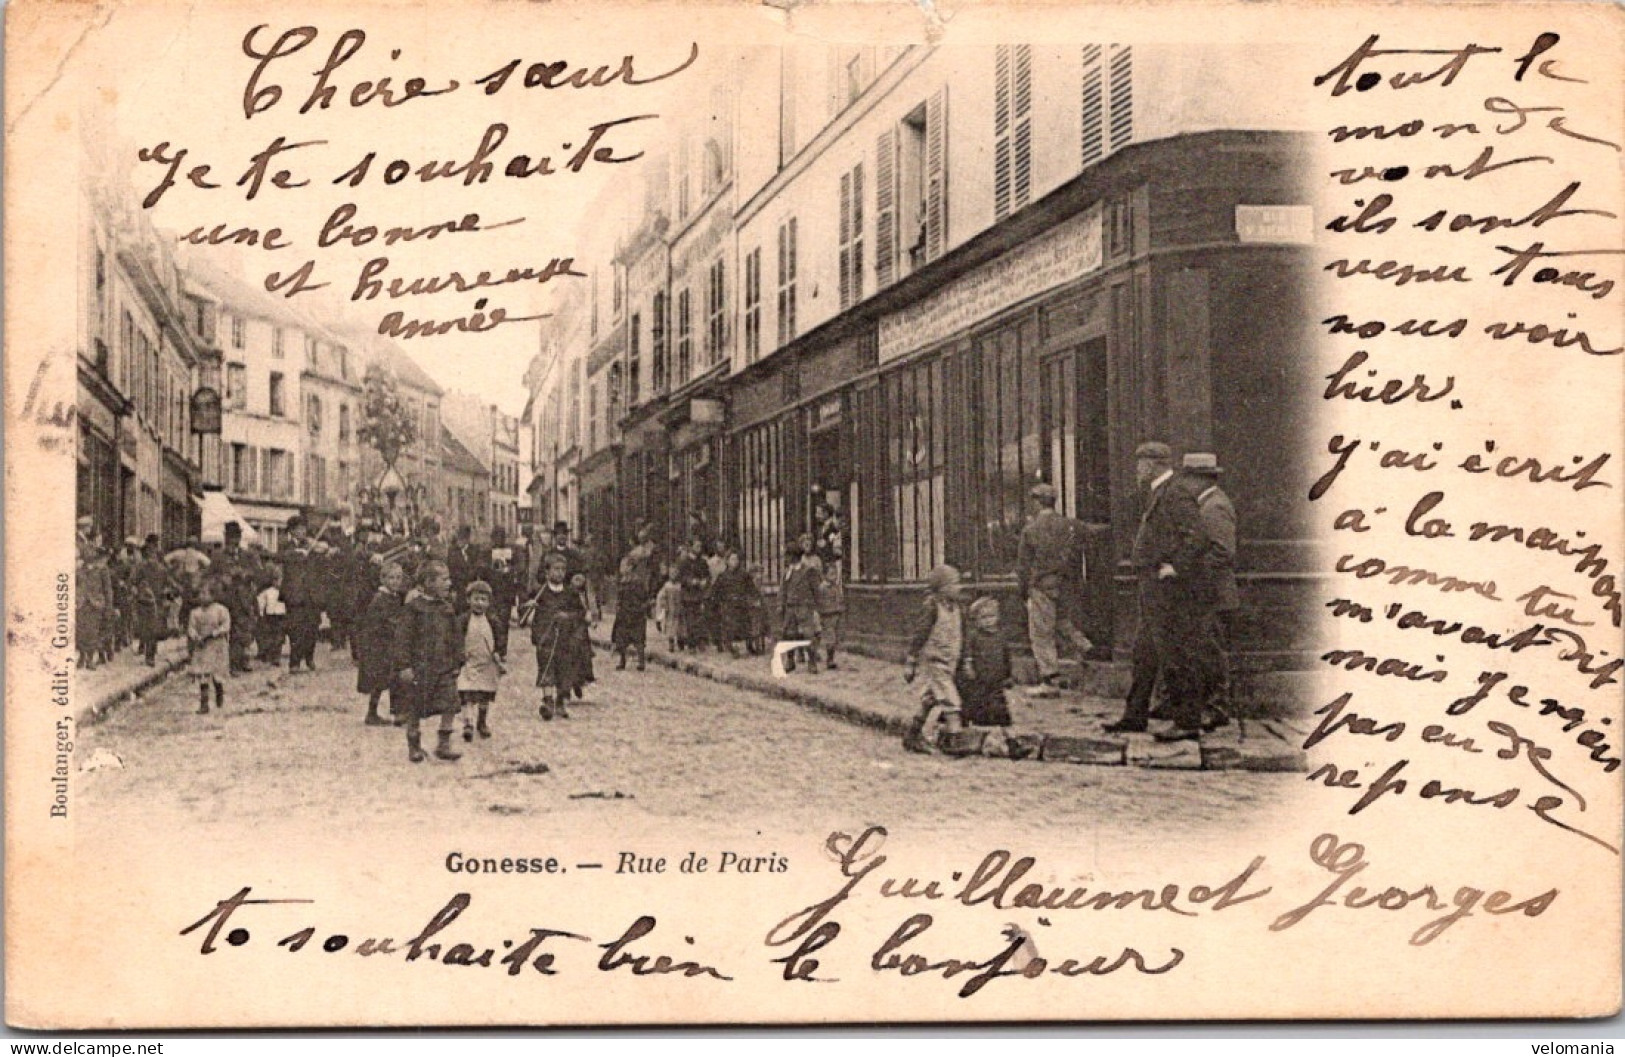 Chère sœur
Je te souhaite
une bonne
et heureuse
année
tout le
monde
vont
ils sont
venu tous
nous voir
hier.
j'ai écrit
à la maison
comme tu
m'avait dit
mais je n'ai
pas eu de
réponse
Boulanger, édit., Gonesse
Gonesse. — Rue de Paris
Guillaume et Georges
te souhaite bien le bonjour
velomania